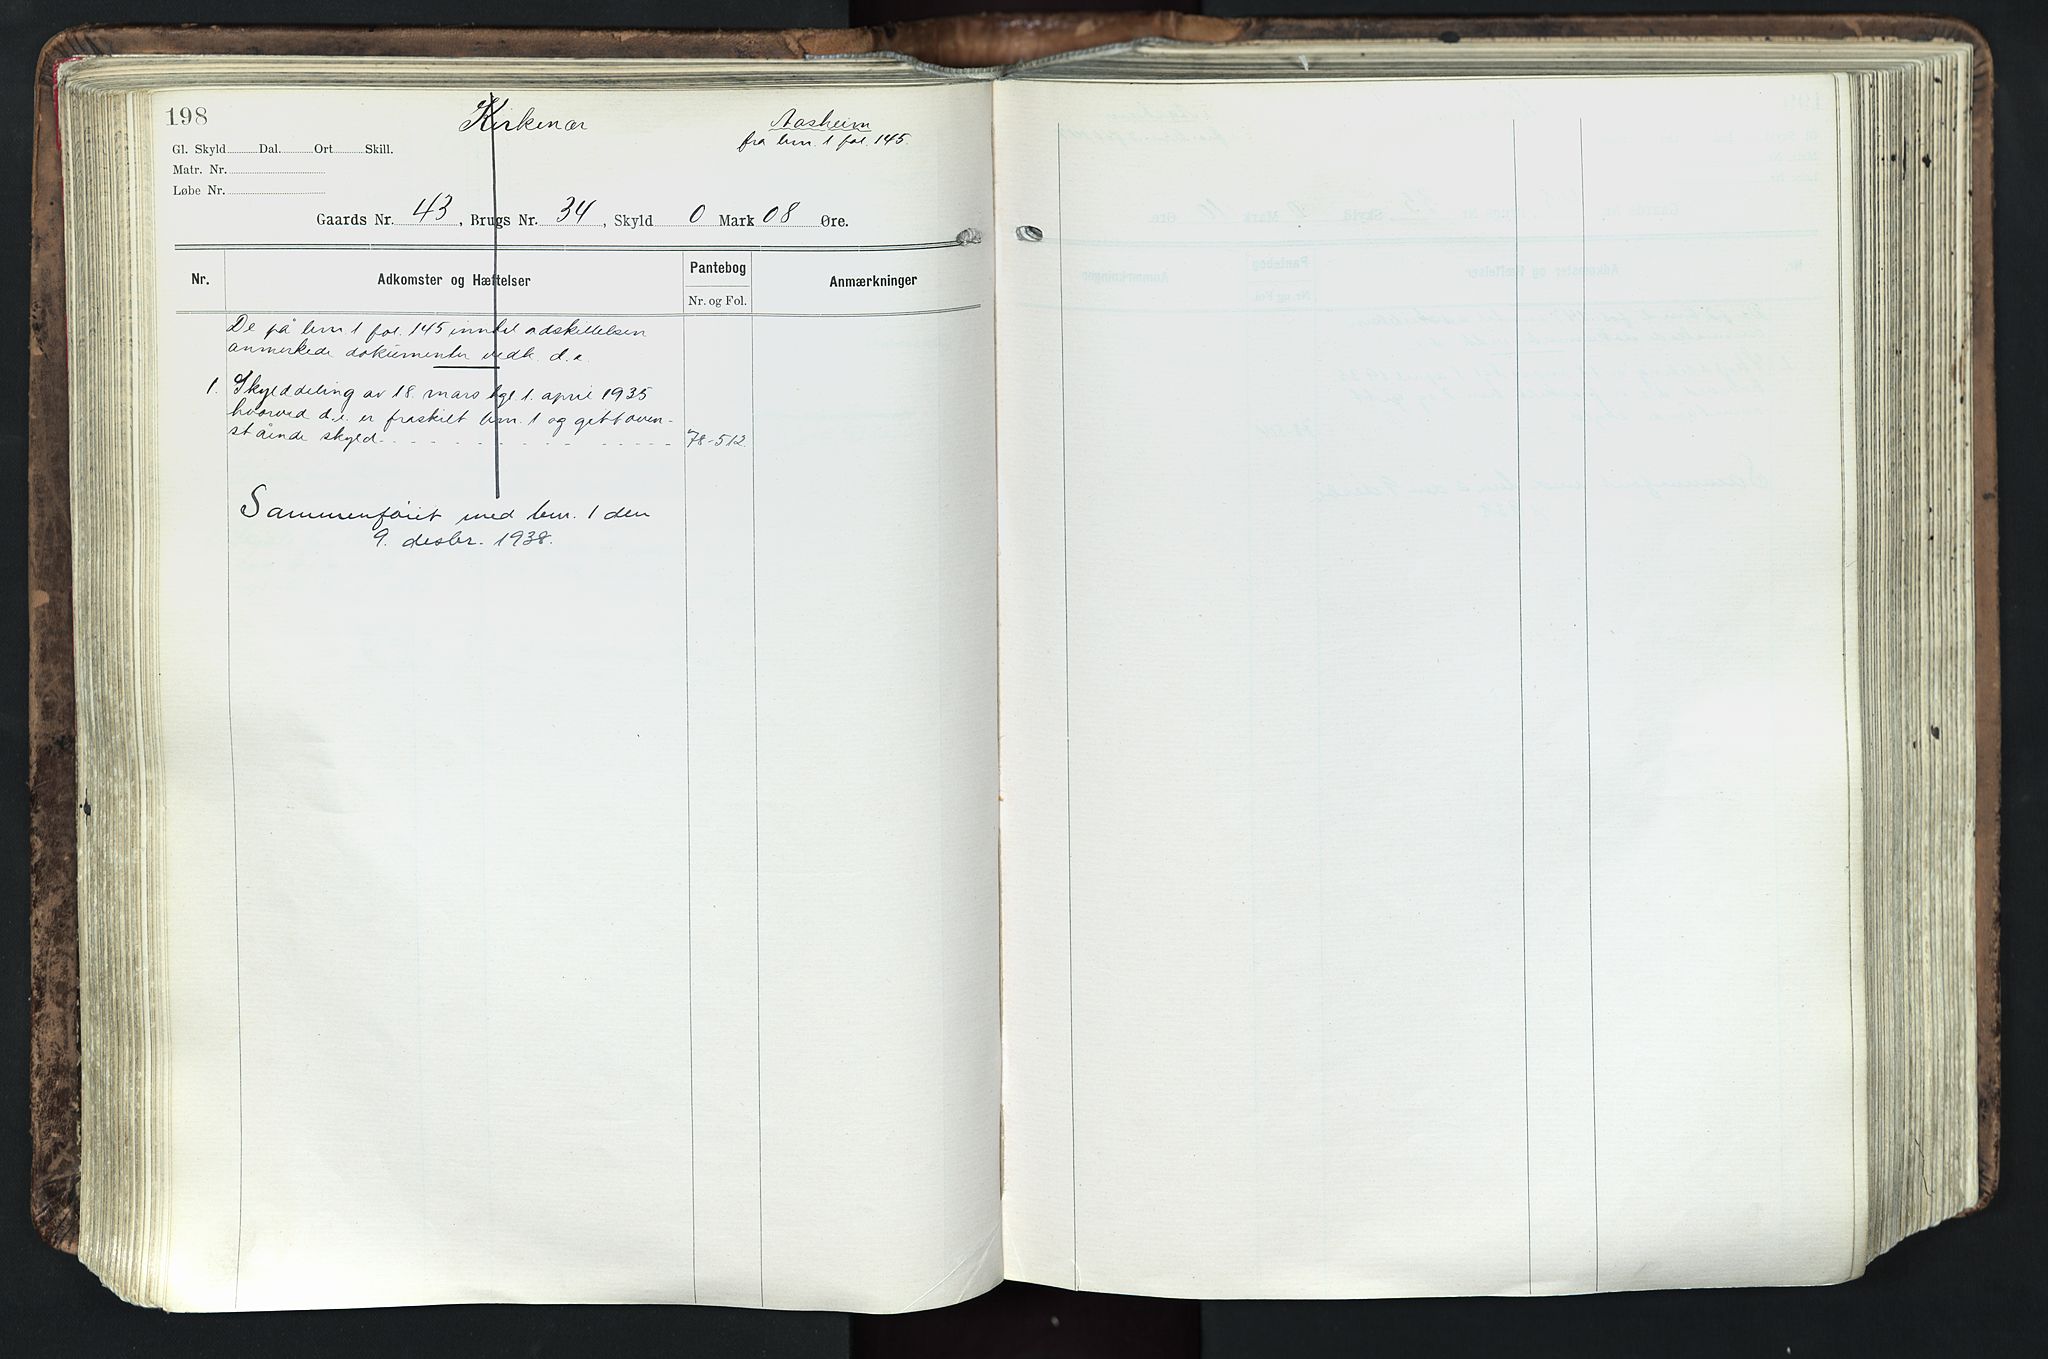 198
Kirkenær
Aasheim
fra brn. 1 fol. 145.
Gl. Skyld Dal. Ort Skill.
Matr. Nr.
Løbe Nr.
Gaards Nr. 43, Brugs Nr. 34, Skyld 0 Mark 08 Øre.
Nr. Adkomster og Hæftelser Pantebog Anmærkninger
Nr. og Fol.
De på brn. 1 fol. 145 inntil adskillelsen
anmerkede dokumenter vedk. d.e.
1. Skylddeling av 18. mars tgl. 1. april 1935
hvorved d.e. er fraskilt brn. 1 og gitt oven-
stående skyld 78-512.
Sammenføiet med brn. 1 den
9. desbr. 1938.